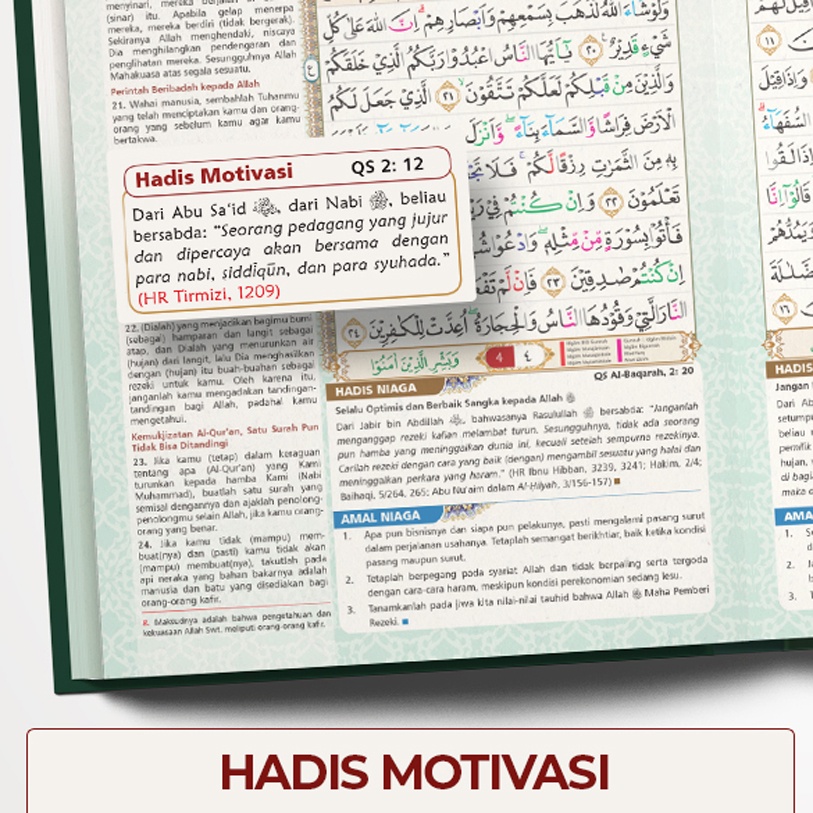 (sinar) itu. Apabila gelap menerpa
mereka, mereka berdiri (tidak bergerak).
Sekiranya Allah menghendaki, niscaya
Dia menghilangkan pendengaran dan
penglihatan mereka. Sesungguhnya Allah
Mahakuasa atas segala sesuatu.
Perintah Beribadah kepada Allah
21. Wahai manusia, sembahlah Tuhanmu
yang telah menciptakan kamu dan orang-
orang yang sebelum kamu agar kamu
bertakwa.
وَلَوْ شَاءَ اللّٰهُ لَذَهَبَ بِسَمْعِهِمْ وَاَبْصَارِهِمْ ۗ اِنَّ اللّٰهَ عَلٰى كُلِّ
شَيْءٍ قَدِيْرٌ ࣖ ٢٠ يٰٓاَيُّهَا النَّاسُ اعْبُدُوْا رَبَّكُمُ الَّذِيْ خَلَقَكُمْ
وَالَّذِيْنَ مِنْ قَبْلِكُمْ لَعَلَّكُمْ تَتَّقُوْنَ ۙ ٢١ الَّذِيْ جَعَلَ لَكُمُ
الْاَرْضَ فِرَاشًا وَّالسَّمَاۤءَ بِنَاۤءً ۖ وَّاَنْزَلَ
بِهٖ مِنَ الثَّمَرٰتِ رِزْقًا لَّكُمْ ۚ فَلَا
تَعْلَمُوْنَ ٢٢ وَاِنْ كُنْتُمْ فِيْ
فَأْتُوْا بِسُوْرَةٍ مِّنْ مِّثْلِهٖ ۖ وَادْعُوْا
اِنْ كُنْتُمْ صٰدِقِيْنَ ٢٣ فَاِنْ لَّمْ
النَّارَ الَّتِيْ وَقُوْدُهَا النَّاسُ وَالْحِجَارَةُ ۖ اُعِدَّتْ لِلْكٰفِرِيْنَ ٢٤
وَبَشِّرِ الَّذِيْنَ اٰمَنُوْا
4 ٤
Hadis Motivasi QS 2: 12
Dari Abu Sa'id ﵁, dari Nabi ﷺ, beliau
bersabda: "Seorang pedagang yang jujur
dan dipercaya akan bersama dengan
para nabi, siddīqūn, dan para syuhada."
(HR Tirmizi, 1209)
22. (Dialah) yang menjadikan bagimu bumi
(sebagai) hamparan dan langit sebagai
atap, dan Dialah yang menurunkan air
(hujan) dari langit, lalu Dia menghasilkan
dengan (hujan) itu buah-buahan sebagai
rezeki untuk kamu. Oleh karena itu,
janganlah kamu mengadakan tandingan-
tandingan bagi Allah, padahal kamu
mengetahui.
Kemukjizatan Al-Qur'an, Satu Surah Pun
Tidak Bisa Ditandingi
23. Jika kamu (tetap) dalam keraguan
tentang apa (Al-Qur'an) yang Kami
turunkan kepada hamba Kami (Nabi
Muhammad), buatlah satu surah yang
semisal dengannya dan ajaklah penolong-
penolongmu selain Allah, jika kamu orang-
orang yang benar.
24. Jika kamu tidak (mampu) mem-
buat(nya) dan (pasti) kamu tidak akan
(mampu) membuat(nya), takutlah pada
api neraka yang bahan bakarnya adalah
manusia dan batu yang disediakan bagi
orang-orang kafir.
8. Maksudnya adalah bahwa pengetahuan dan
kekuasaan Allah Swt. meliputi orang-orang kafir.
QS Al-Baqarah, 2: 20
HADIS NIAGA
Selalu Optimis dan Berbaik Sangka kepada Allah
Dari Jabir bin Abdillah ﵁, bahwasanya Rasulullah ﷺ bersabda: "Janganlah
menganggap rezeki kalian melambat turun. Sesungguhnya, tidak ada seorang
pun hamba yang meninggalkan dunia ini, kecuali setelah sempurna rezekinya.
Carilah rezeki dengan cara yang baik (dengan) mengambil sesuatu yang halal dan
meninggalkan perkara yang haram." (HR Ibnu Hibban, 3239, 3241; Hakim, 2/4;
Baihaqi, 5/264, 265; Abu Nu'aim dalam Al-Hilyah, 3/156-157)
AMAL NIAGA
1. Apa pun bisnisnya dan siapa pun pelakunya, pasti mengalami pasang surut
dalam perjalanan usahanya. Tetaplah semangat berikhtiar, baik ketika kondisi
pasang maupun surut.
2. Tetaplah berpegang pada syariat Allah dan tidak berpaling serta tergoda
dengan cara-cara haram, meskipun kondisi perekonomian sedang lesu.
3. Tanamkanlah pada jiwa kita nilai-nilai tauhid bahwa Allah Maha Pemberi
Rezeki.
HADIS MOTIVASI